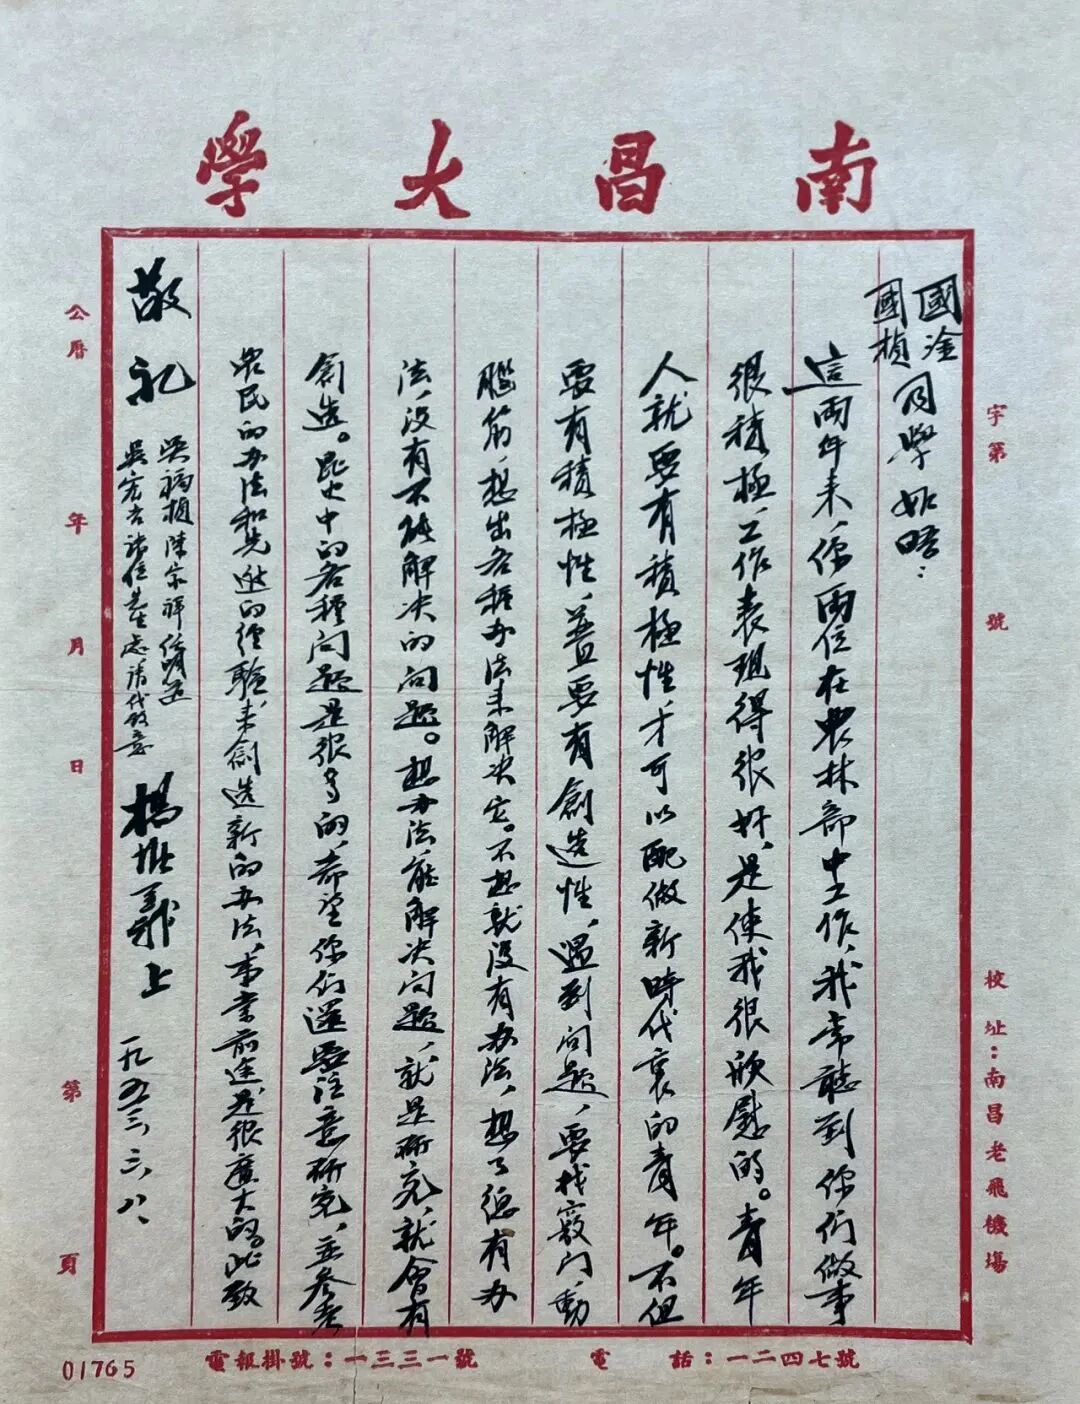 南昌大學
字第 號
校址：南昌老飛機場
國淦
國楨
同學如晤：
這兩年来，你兩位在農林部中工作，我常聽到你們做事
很積極，工作表現得很好，是使我很欣慰的。青年
人就要有積極性，才可以配做新時代裏的青年。不但
要有積極性，並且要有創造性，遇到问题，要找竅门，動
腦筋，想出各種办法来解决它。不想就没有办法，想了總有办
法，没有不能解决的问题。想办法，能解决问题，就是研究，就會有
創造。昆虫中的各種问题是很多的，希望你们還要注意研究，並参考
農民的办法和先進的經驗，来創造新的办法，事業前途是很廣大的。此致
敬礼
吴福楨陳宗祥任明道
吴宏吉諸位處請代致意
楊惟義上
一九五三、六、八、
公曆 年 月 日 第 頁
電報掛號：一三三一號 電 話：一二四七號
01765